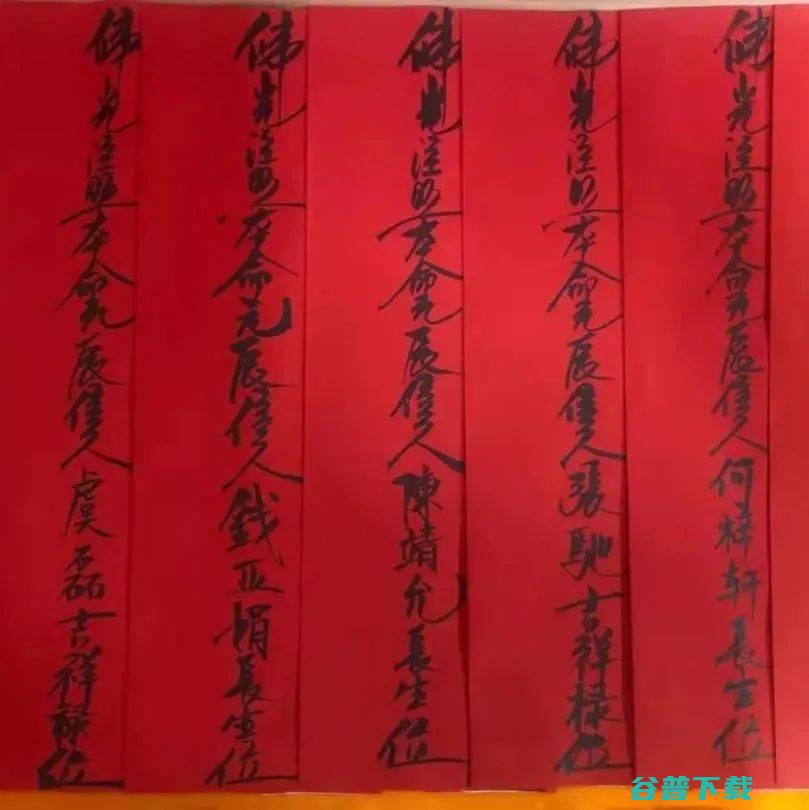 佛光注照本命元辰佳人何梓轩長生位
佛光注照本命元辰隹人張馳吉祥禄位
佛光注照本命元辰佳人陳靖允長生位
佛光注照本命元辰佳人錢亚娟長生位
佛光注照本命元辰佳人虞磊吉祥禄位
谷普下载